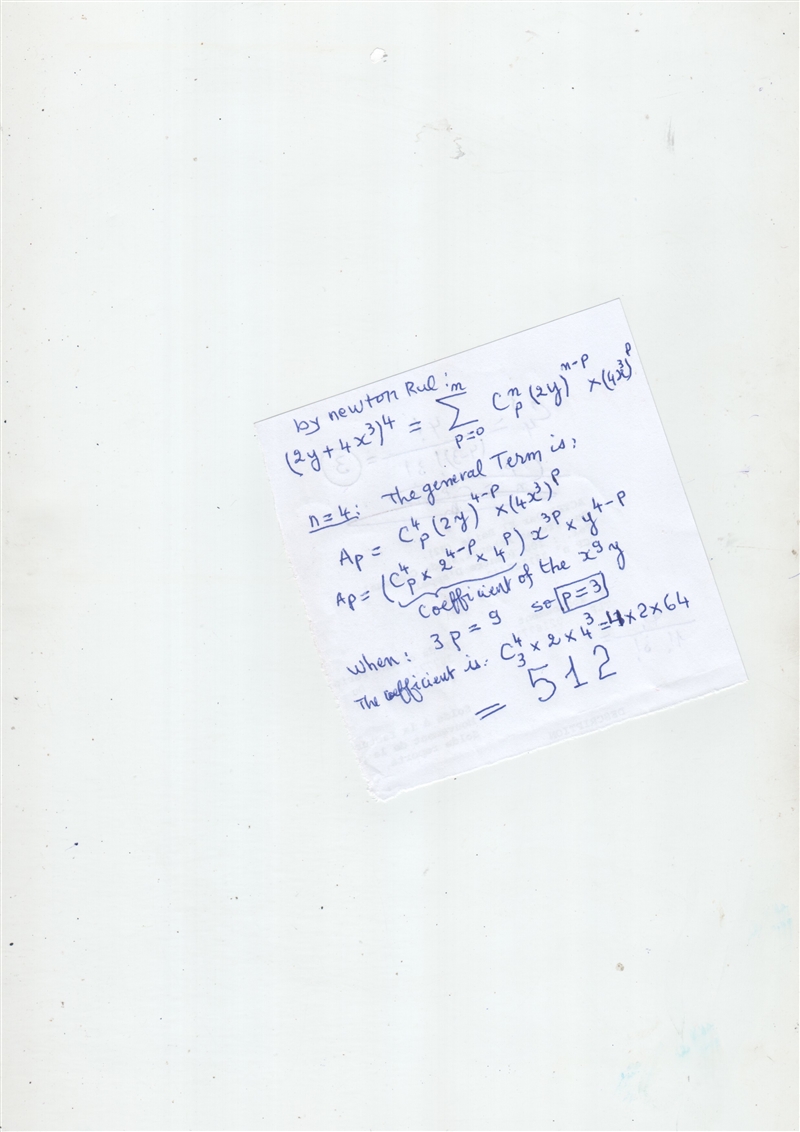 by newton Rul:
(2y+4x³)⁴ = ∑ₚ₌₀ⁿ Cₚⁿ (2y)ⁿ⁻ᵖ × (4x³)ᵖ
n=4: The general Term is:
Aₚ = Cₚ⁴ (2y)⁴⁻ᵖ × (4x³)ᵖ
Aₚ = (Cₚ⁴ × 2⁴⁻ᵖ × 4ᵖ) x³ᵖ × y⁴⁻ᵖ
Coefficient of the x⁹y
when: 3p = 9 so p=3
The coefficient is: C₃⁴ × 2 × 4³ = 4×2×64
= 512